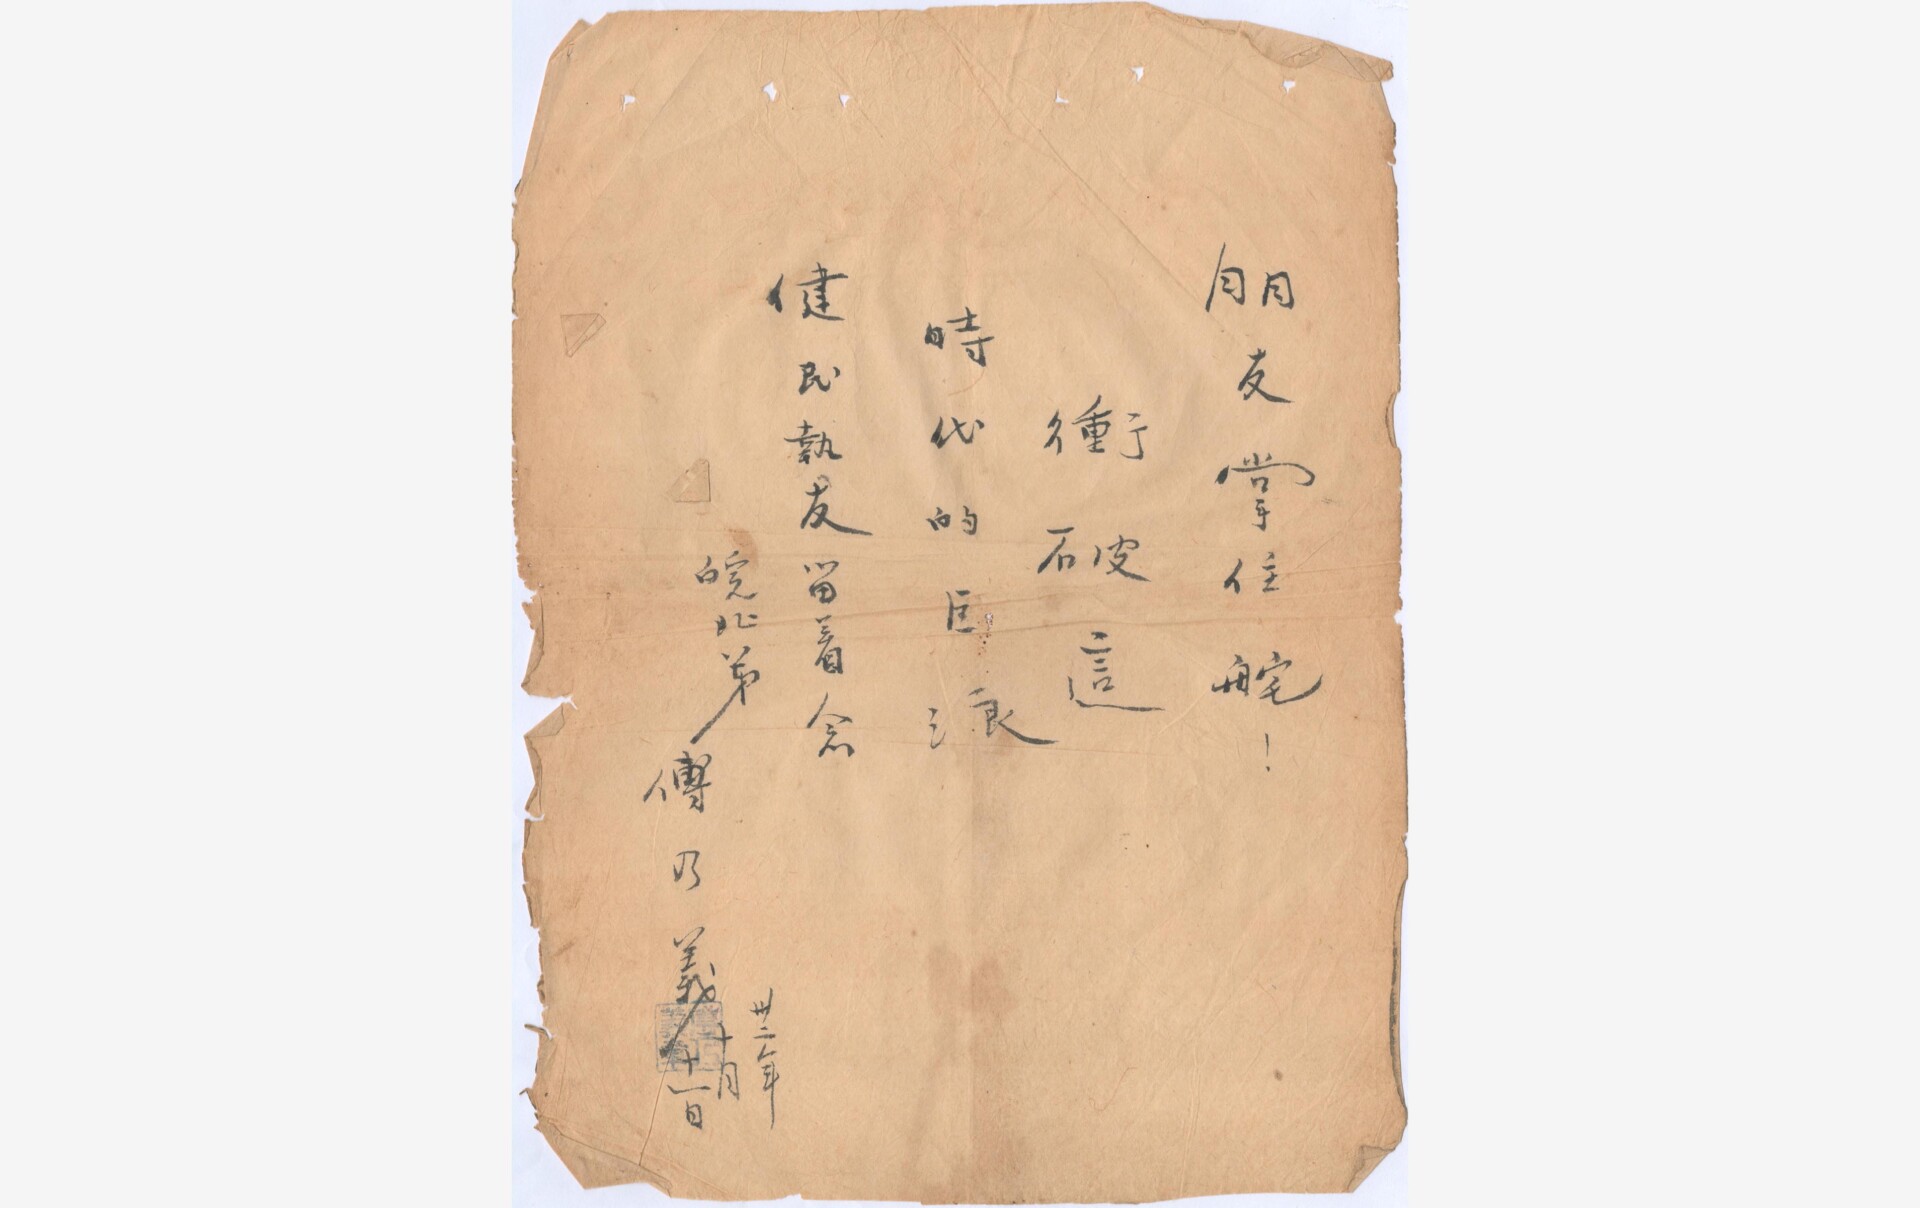 朋友掌住舵!
衝破這
時代的巨浪
健民執友留着念
皖北弟傅乃義
卅二年
十月
十一日